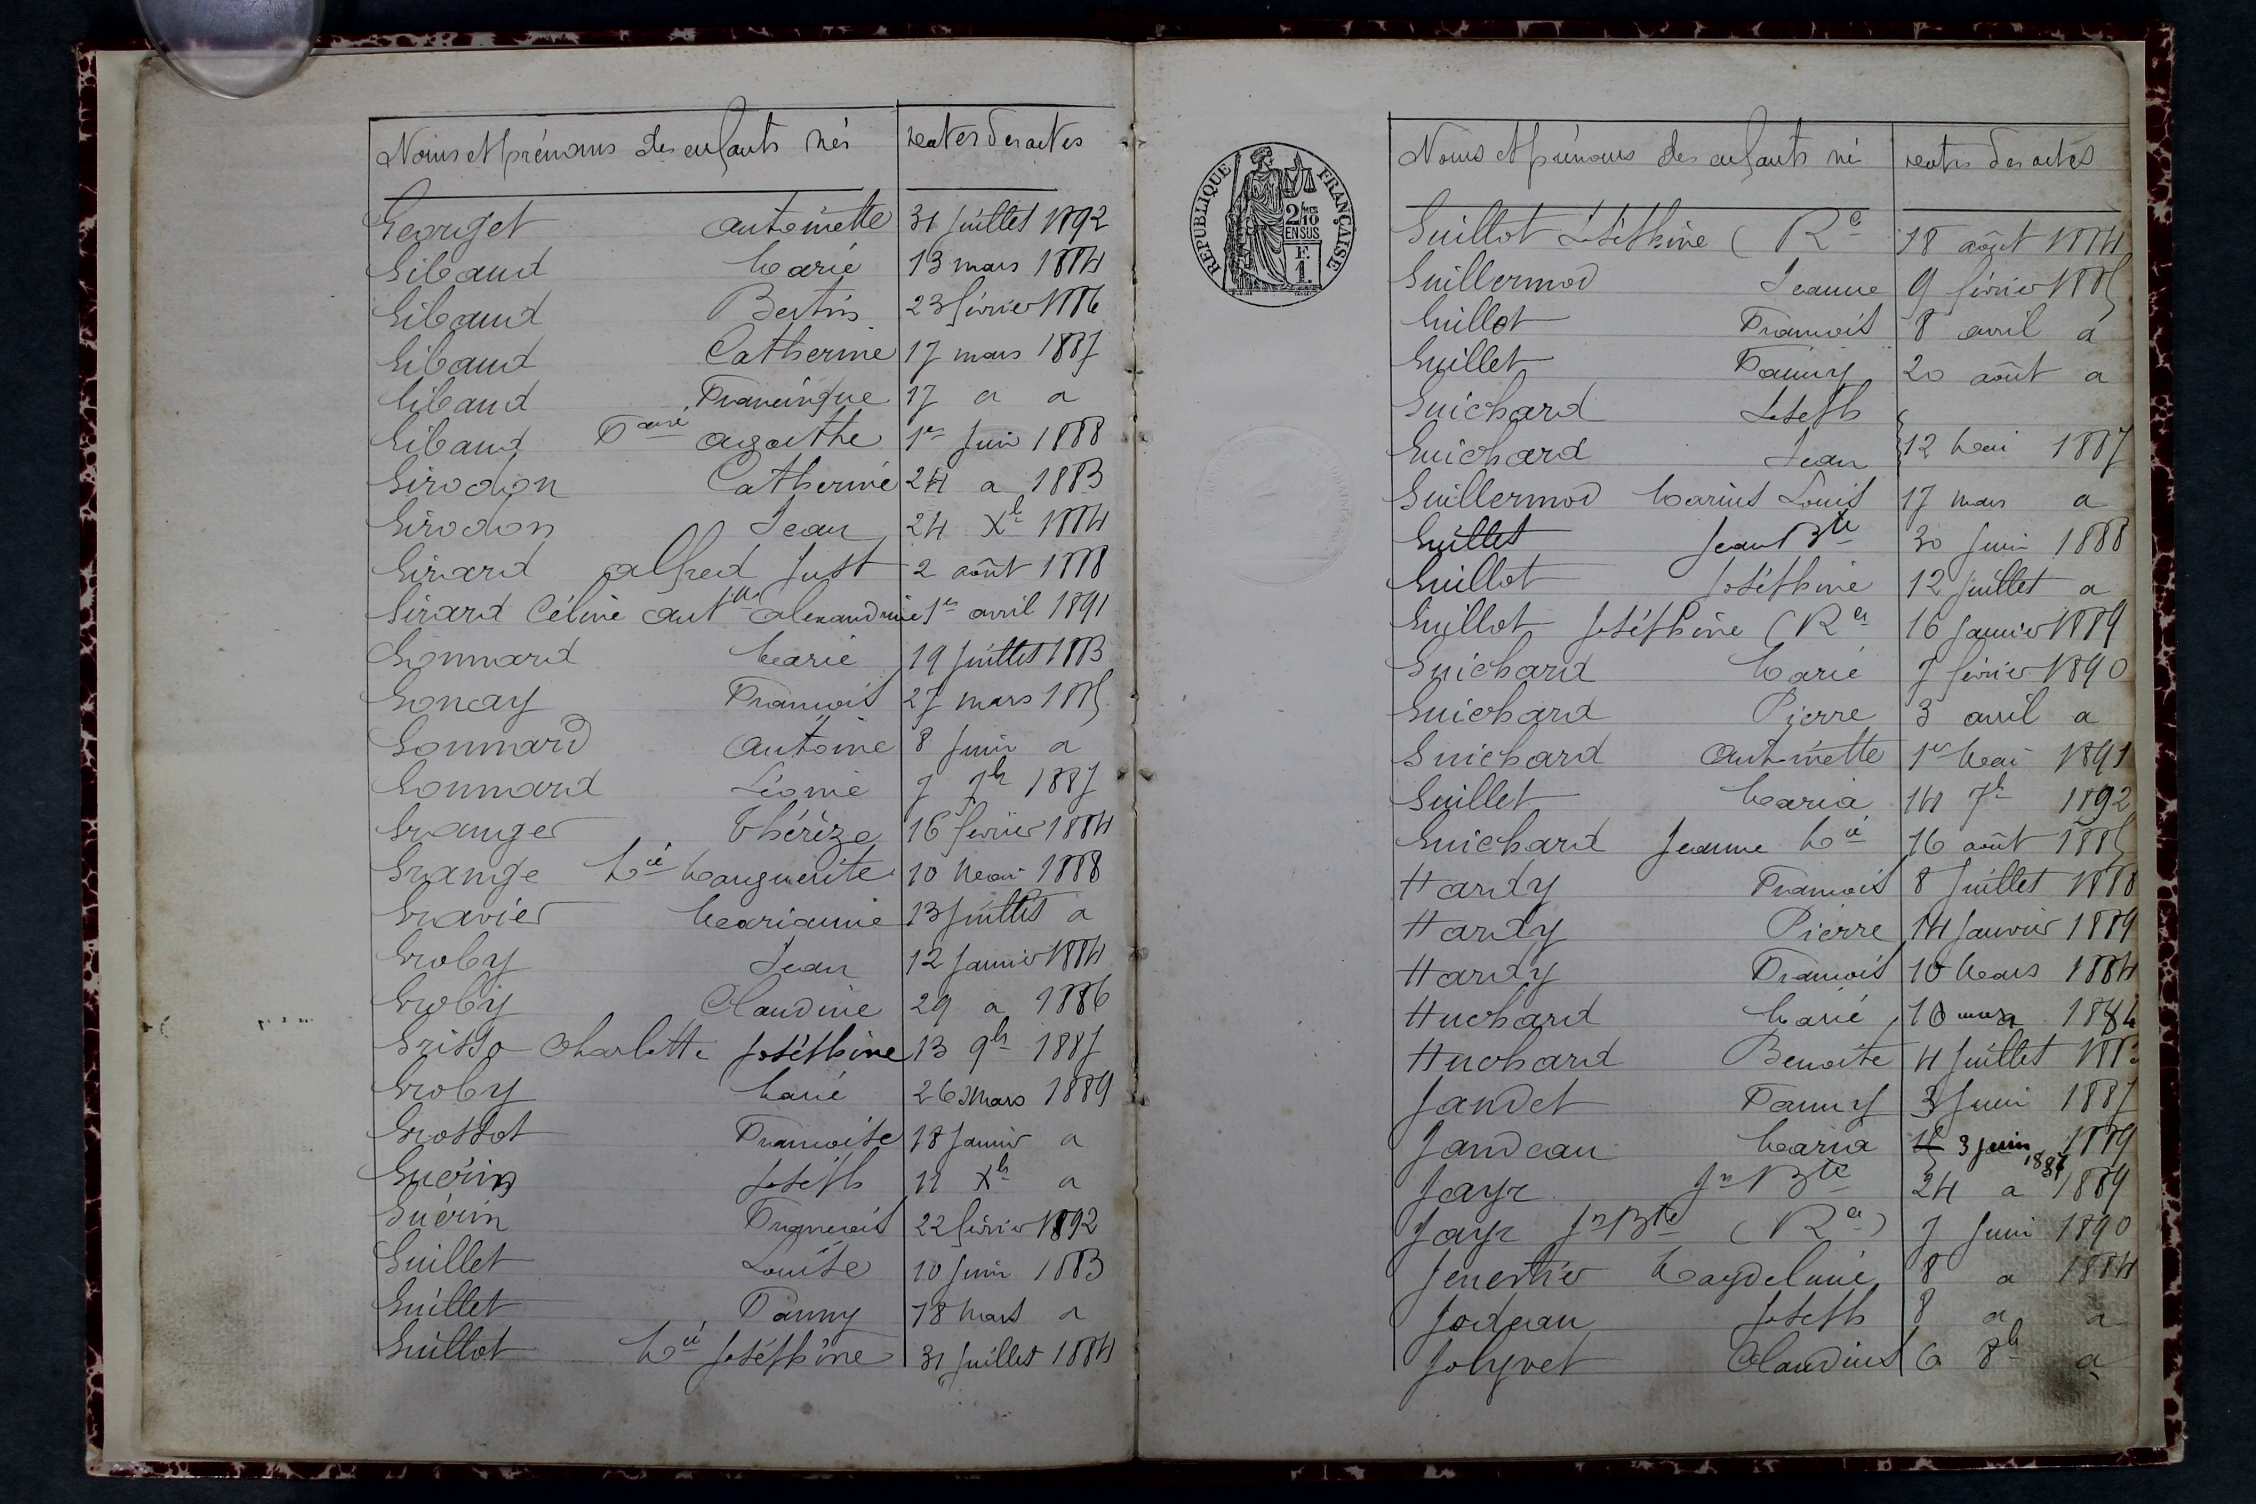 Noms et prénoms des enfants nés dates des actes
Georget antoinette 31 juillet 1892
Gibaud Marie 13 mars 1884
Gibaud Bertin 23 février 1886
Gibaud Catherine 17 mars 1887
Gibaud Francisque 17 a a
Gibaud agathe 1er juin 1888
Girodon Catherine 24 a 1883
Girodon Jean 24 Xb 1884
Girard alfred just 2 août 1888
Girard Céline antte alexandrine 1er avril 1891
Gonnard Marie 19 juillet 1883
Gonay François 27 mars 1885
Gonnard antoine 8 juin a
Gonnard Léonie 7 7br 1887
Granger Thérèze 16 février 1884
Grange Mie Marguerite 10 Mai 1888
Gravier Mariannie 13 juillet a
Groby Jean 12 janvier 1884
Groby Claudine 29 a 1886
Grisso Charlotte joséphine 13 9br 1887
Groby Marie 26 mars 1889
Grossot Françoise 18 janvier a
Guérin joseph 11 Xbr a
Guérin François 22 février 1892
Guillet Louise 10 juin 1883
Guillet Fanny 18 Mars a
Guillot Mie joséphine 31 juillet 1884
RÉPUBLIQUE FRANÇAISE
2/10
EN SUS
F.
1.
Noms et prénoms des enfants né dates des actes
Guillot joséphine ( Re 18 août 1884
Guillermod Jeanne 9 février 1885
Guillot François 8 avril a
Guillet Fanny 20 août a
Guichard Joseph
Guichard Jean 12 Mai 1887
Guillermod Marius Louis 17 mars a
Guillet jean Bte 30 juin 1888
Guillot joséphine 12 juillet a
Guillot joséphine (Rer 16 janvier 1889
Guichard Marie 7 février 1890
Guichard Pierre 3 avril a
Guichard antoinette 1er Mai 1891
Guillet Maria 14 7b 1892
Guichard jeanne Mie 16 août 1885
Hardy François 8 juillet 1888
Hardy Pierre 14 janvier 1889
Hardy François 10 Mars 1884
Huchard Marie 10 mars 1884
Huchard Benoite 4 juillet 1883
jandet Fanny 3 juin 1887
jandeau Maria 3 juin 1889
1887
jayr jn Bte 24 a 1889
jayr jn Bte (Rer) 7 juin 1890
jenestier Magdelaine 8 a 1884
jodeau joseph 8 a a
jolyvet Claudius 6 8b a